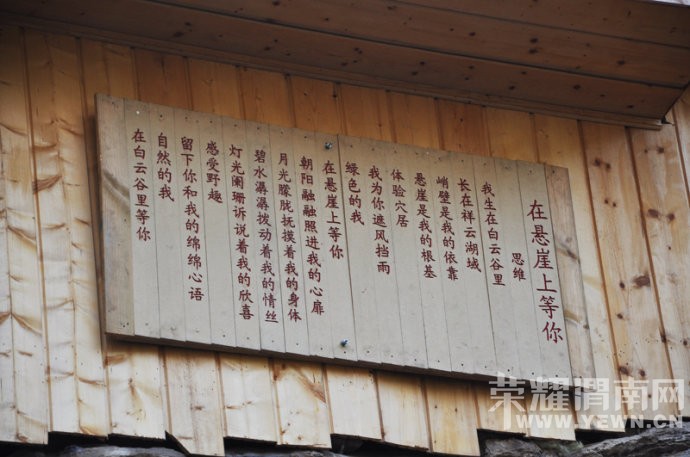 在悬崖上等你
思维
我生在白云谷里
长在祥云湖域
峭壁是我的依靠
悬崖是我的根基
体验穴居
我为你遮风挡雨
绿色的我
在悬崖上等你
朝阳融融照进我的心扉
月光朦胧抚摸着我的身体
碧水潺潺拨动着我的情丝
灯光阑珊诉说着我的欣喜
感受野趣
留下你和我的绵绵心语
自然的我
在白云谷里等你
荣耀渭南网
WWW.YEWN.CN